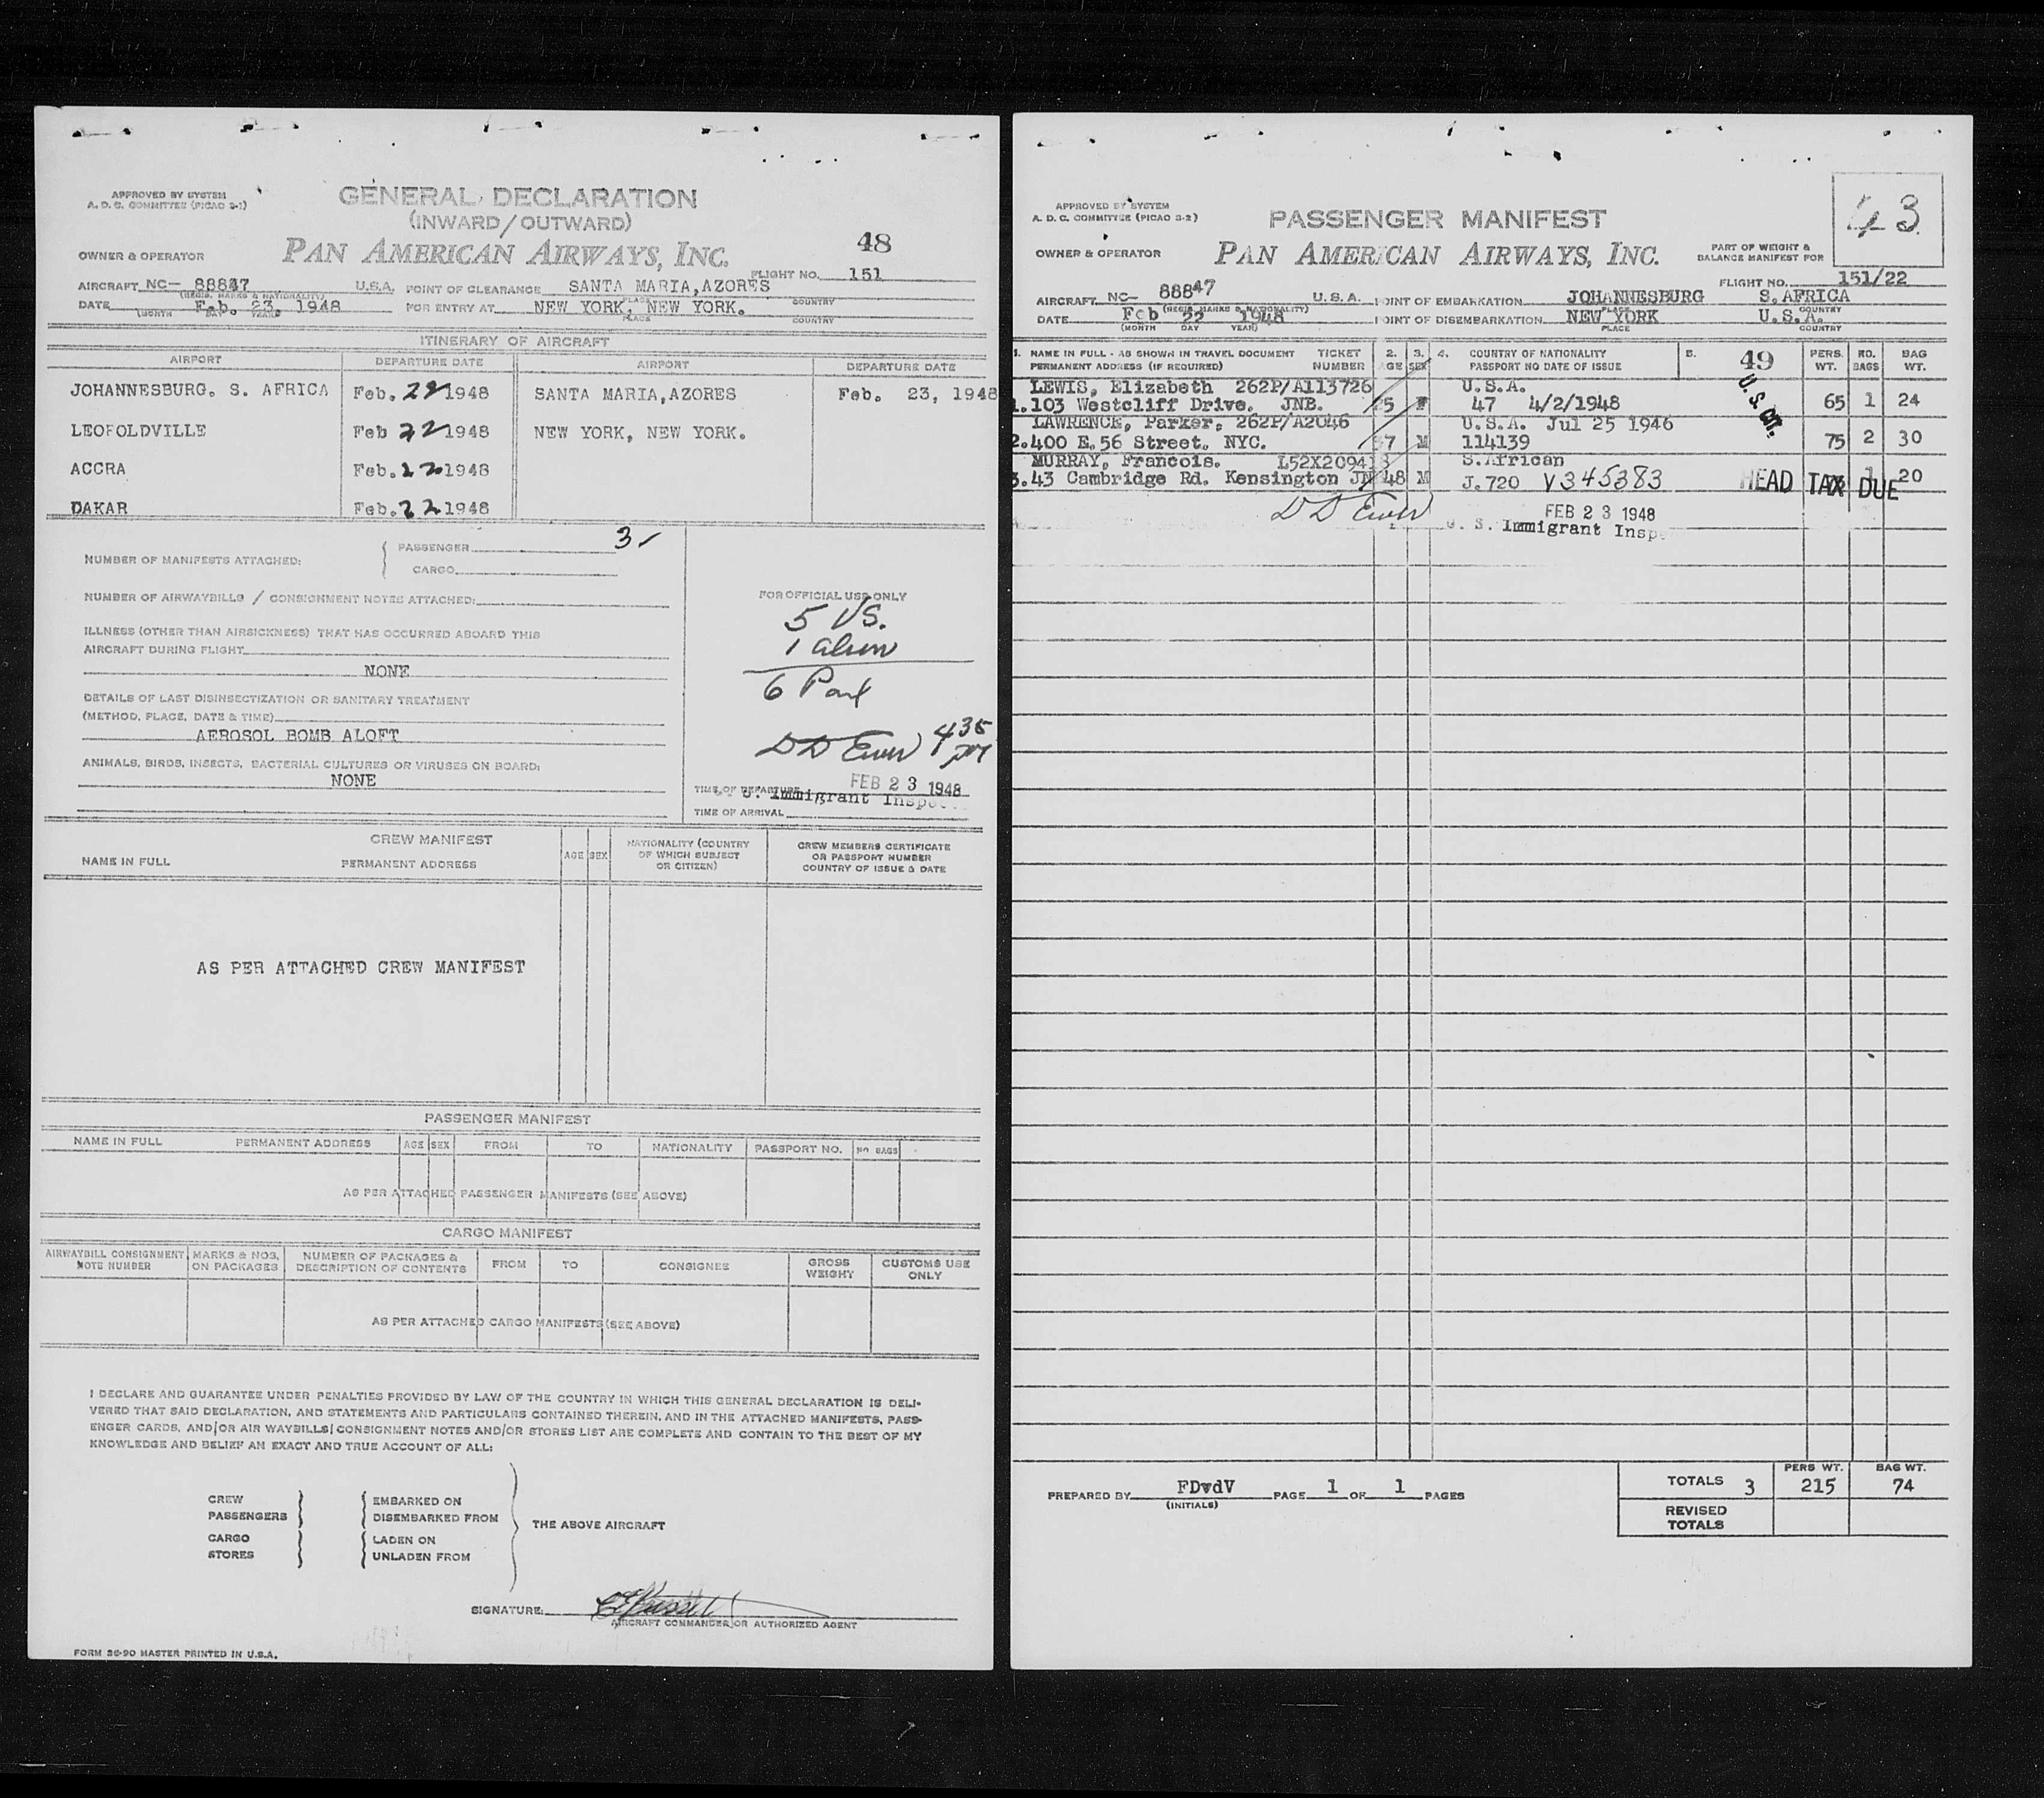 APPROVED BY SYSTEM
A. D. C. COMMITTEE (PICAO 2-1)
GENERAL DECLARATION
(INWARD/OUTWARD)
OWNER & OPERATOR
PAN AMERICAN AIRWAYS, INC.
48
FLIGHT NO. 151
AIRCRAFT NC— 88847 U.S.A. POINT OF CLEARANCE SANTA MARIA,AZORES
(REGIS. MARKS & NATIONALITY) PLACE COUNTRY
DATE Feb. 23, 1948 FOR ENTRY AT NEW YORK, NEW YORK.
(MONTH DAY YEAR) PLACE COUNTRY
ITINERARY OF AIRCRAFT
AIRPORT DEPARTURE DATE AIRPORT DEPARTURE DATE
JOHANNESBURG. S. AFRICA Feb. 22 1948 SANTA MARIA,AZORES Feb. 23, 1948
LEOPOLDVILLE Feb 22 1948 NEW YORK, NEW YORK.
ACCRA Feb. 22 1948
DAKAR Feb. 22 1948
NUMBER OF MANIFESTS ATTACHED: { PASSENGER 3-
CARGO
NUMBER OF AIRWAYBILLS / CONSIGNMENT NOTES ATTACHED:
ILLNESS (OTHER THAN AIRSICKNESS) THAT HAS OCCURRED ABOARD THIS
AIRCRAFT DURING FLIGHT
NONE
DETAILS OF LAST DISINSECTIZATION OR SANITARY TREATMENT
(METHOD, PLACE, DATE & TIME)
AEROSOL BOMB ALOFT
ANIMALS, BIRDS, INSECTS, BACTERIAL CULTURES OR VIRUSES ON BOARD:
NONE
FOR OFFICIAL USE ONLY
5 US.
1 alien
6
435
PM
FEB 23 1948
TIME OF DEPARTURE
Immigrant
TIME OF ARRIVAL
CREW MANIFEST
NAME IN FULL PERMANENT ADDRESS AGE SEX NATIONALITY (COUNTRY OF WHICH SUBJECT OR CITIZEN) CREW MEMBERS CERTIFICATE OR PASSPORT NUMBER COUNTRY OF ISSUE & DATE
AS PER ATTACHED CREW MANIFEST
PASSENGER MANIFEST
NAME IN FULL PERMANENT ADDRESS AGE SEX FROM TO NATIONALITY PASSPORT NO. NO BAGS
AS PER ATTACHED PASSENGER MANIFESTS (SEE ABOVE)
CARGO MANIFEST
AIRWAYBILL CONSIGNMENT NOTE NUMBER MARKS & NOS. ON PACKAGES NUMBER OF PACKAGES & DESCRIPTION OF CONTENTS FROM TO CONSIGNEE GROSS WEIGHT CUSTOMS USE ONLY
AS PER ATTACHED CARGO MANIFESTS (SEE ABOVE)
I DECLARE AND GUARANTEE UNDER PENALTIES PROVIDED BY LAW OF THE COUNTRY IN WHICH THIS GENERAL DECLARATION IS DELI-
VERED THAT SAID DECLARATION, AND STATEMENTS AND PARTICULARS CONTAINED THEREIN, AND IN THE ATTACHED MANIFESTS, PASS-
ENGER CARDS, AND/OR AIR WAYBILLS/CONSIGNMENT NOTES AND/OR STORES LIST ARE COMPLETE AND CONTAIN TO THE BEST OF MY
KNOWLEDGE AND BELIEF AN EXACT AND TRUE ACCOUNT OF ALL:
CREW EMBARKED ON
PASSENGERS DISEMBARKED FROM
THE ABOVE AIRCRAFT
CARGO LADEN ON
STORES UNLADEN FROM
SIGNATURE:
AIRCRAFT COMMANDER OR AUTHORIZED AGENT
FORM 26-90 MASTER PRINTED IN U.S.A.
APPROVED BY SYSTEM
A. D. C. COMMITTEE (PICAO 3-2)
PASSENGER MANIFEST
43
OWNER & OPERATOR
PAN AMERICAN AIRWAYS, INC.
PART OF WEIGHT &
BALANCE MANIFEST FOR
FLIGHT NO. 151/22
AIRCRAFT NC— 88847 U. S. A. POINT OF EMBARKATION JOHANNESBURG S. AFRICA
(REGIS. MARKS & NATIONALITY) PLACE COUNTRY
DATE Feb 22 1948 POINT OF DISEMBARKATION NEW YORK U.S.A.
(MONTH DAY YEAR) PLACE COUNTRY
1. NAME IN FULL - AS SHOWN IN TRAVEL DOCUMENT TICKET 2. 3. 4. COUNTRY OF NATIONALITY 5. 49 PERS. NO. BAG
PERMANENT ADDRESS (IF REQUIRED) NUMBER AGE SEX PASSPORT NO DATE OF ISSUE WT. BAGS WT.
LEWIS, Elizabeth 262P/A113726 U.S.A.
1. 103 Westcliff Drive. JNB. 5 F 47 4/2/1948 65 1 24
U.S. CIT.
LAWRENCE, Parker, 262P/A2046 U.S.A. Jul 25 1946
2. 400 E. 56 Street. NYC. 7 M 114139 75 2 30
MURRAY, Francois. L52X209413 S.African
3. 43 Cambridge Rd. Kensington JN 48 M J.720 V345383 1 20
HEAD TAX DUE
FEB 23 1948
U. S. Immigrant Inspe
PREPARED BY FDvdV PAGE 1 OF 1 PAGES
(INITIALS)
PERS WT. BAG WT.
TOTALS 3 215 74
REVISED
TOTALS